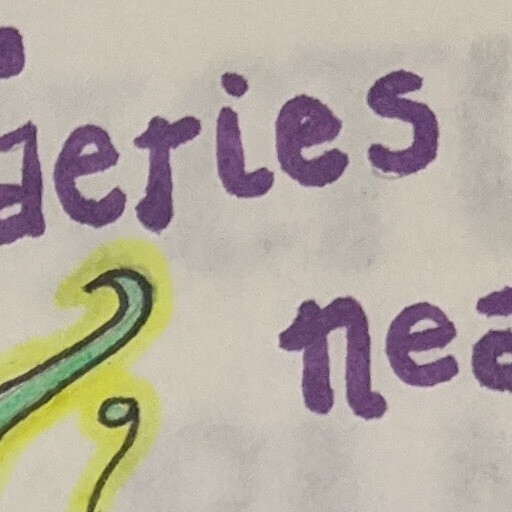 aeries
nea